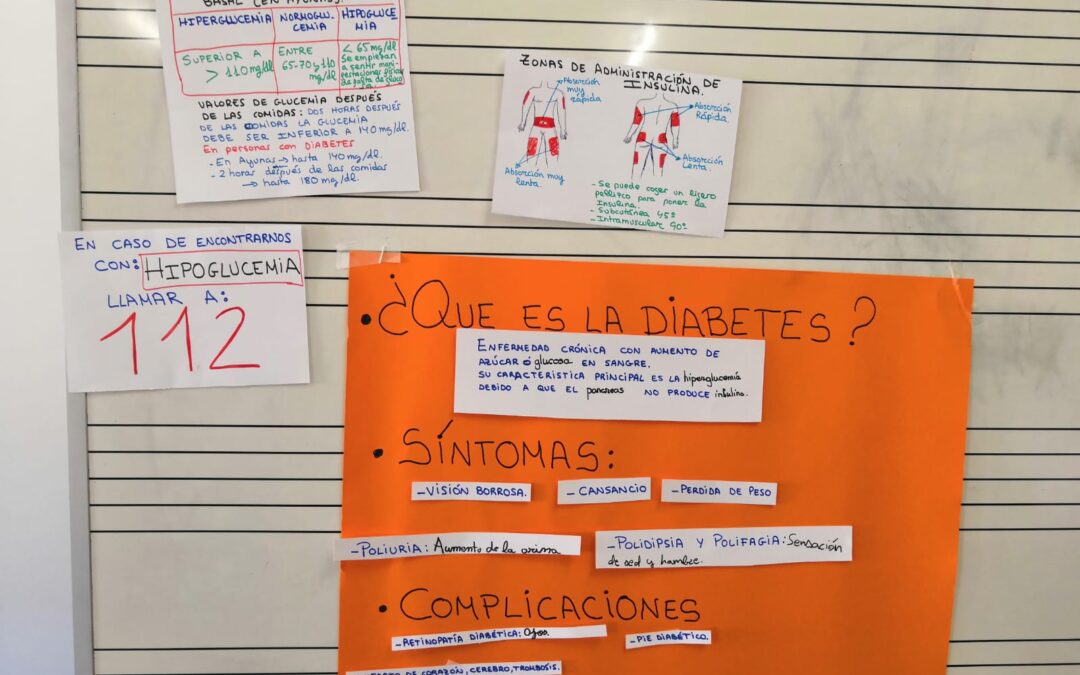 BASAL (EN AYUNAS.
HIPERGLUCEMIA
NORMOGLU-
CEMIA
HIPOGLUCE
MIA
SUPERIOR A
> 110 mg/dl
ENTRE
65-70 y 110
mg/dl
< 65 mg/dl
Se empiezan
a sentir mani-
festaciones físicas
de falta de
VALORES DE GLUCEMIA DESPUÉS
DE LAS COMIDAS: DOS HORAS DESPUÉS
DE LAS COMIDAS LA GLUCEMIA
DEBE SER INFERIOR A 140 mg/dl.
En personas con DIABETES
- En Ayunas → hasta 140 mg/dl.
- 2 horas después de las comidas
→ hasta 180 mg/dl.
ZONAS DE ADMINISTRACIÓN DE
INSULINA.
Absorción
muy
rápida
Absorción
Rápida.
Absorción muy
lenta.
Absorción
Lenta.
- Se puede coger un ligero
pellizco para poner la
Insulina.
- Subcutánea 45º
- Intramuscular 90º
EN CASO DE ENCONTRARNOS
CON: HIPOGLUCEMIA
LLAMAR A:
112
• ¿QUE ES LA DIABETES?
ENFERMEDAD CRÓNICA CON AUMENTO DE
AZÚCAR Ó glucosa EN SANGRE.
SU CARACTERISTICA PRINCIPAL ES LA hiperglucemia
DEBIDO A QUE EL pancreas NO PRODUCE insulina.
• SÍNTOMAS:
- VISIÓN BORROSA.
- CANSANCIO
- PERDIDA DE PESO
- POLIURIA: Aumento de la orina
- POLIDIPSIA Y POLIFAGIA: Sensación
de sed y hambre.
• COMPLICACIONES
- RETINOPATÍA DIABÉTICA: Ojos.
- PIE DIABÉTICO.
DE CORAZÓN, CEREBRO, TROMBOSIS.